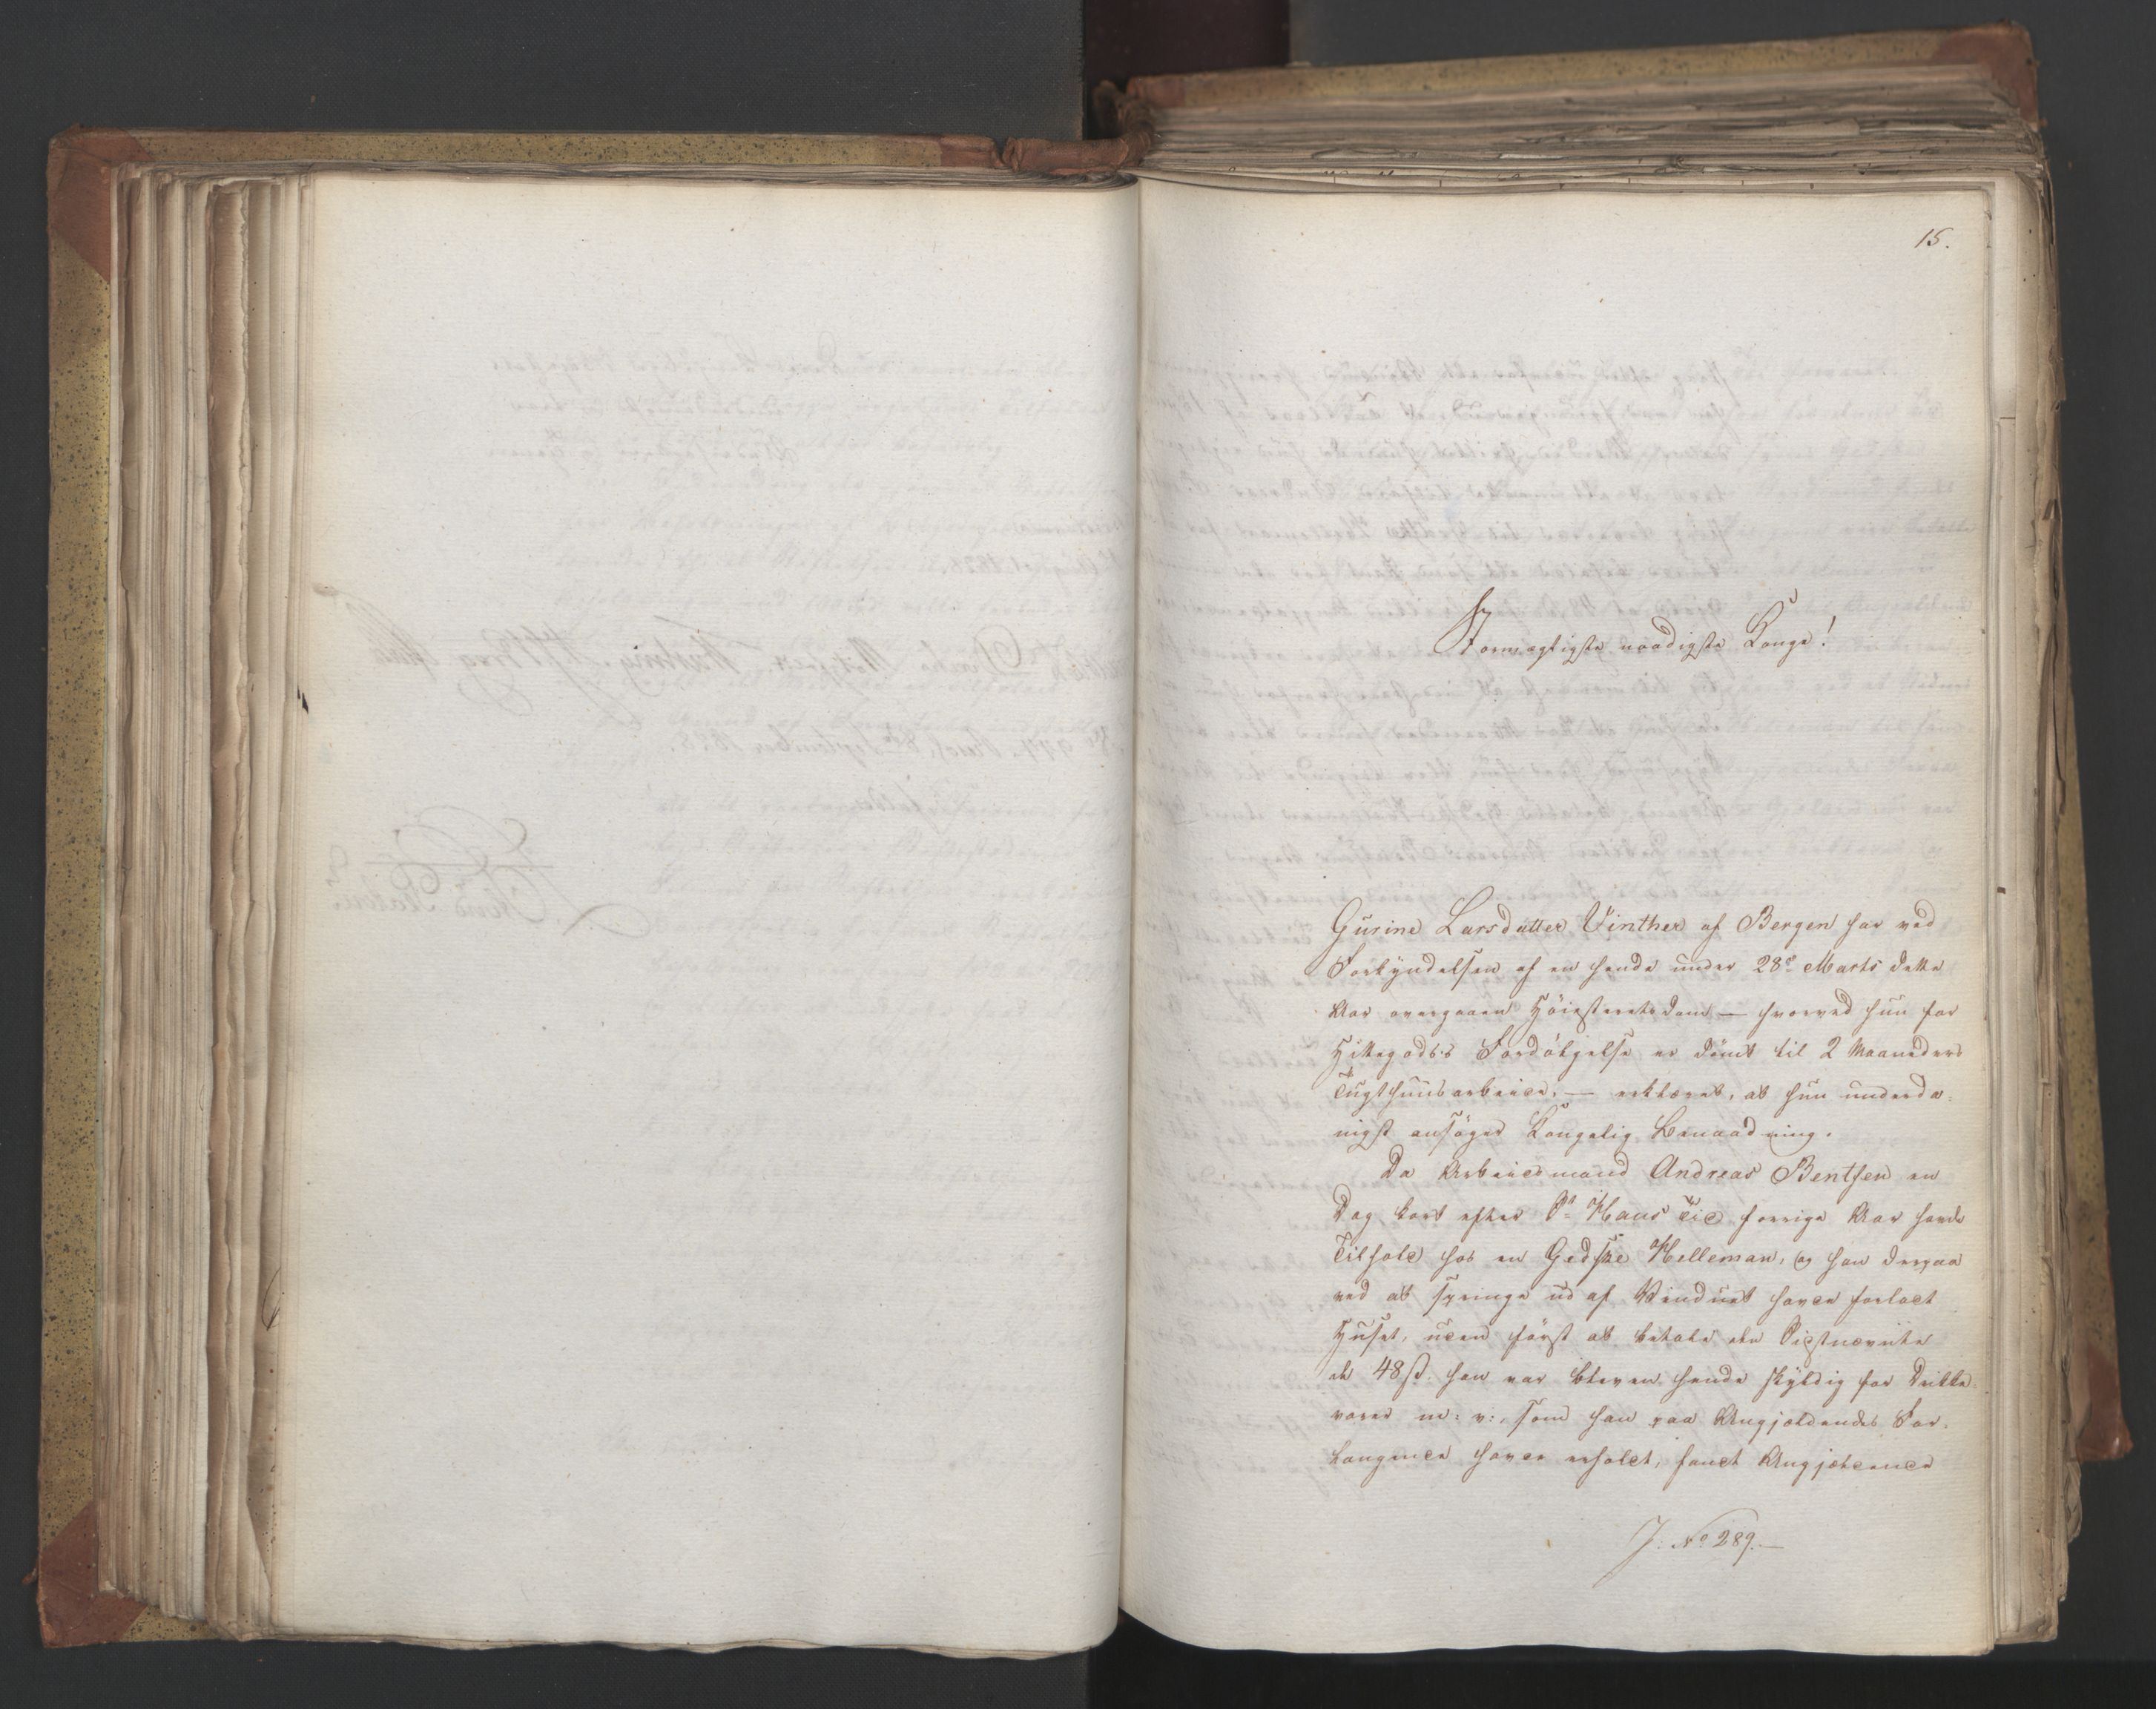 15.
Stormægtigste naadigste Konge!
Gurine Larsdatter Vinther af Bergen har ved
Forkyndelsen af en hende under 28de Marts dette
Aar overgaaen Höiesteretsdom — hvorved hun for
Hittegods's Fordölgelse er dömt til 2 Maaneders
Tugthuusarbeide, — erklæret, at hun underda-
nigst ansöger Kongelig Benaadning.
Da Arbeidsmand Andreas Bentsen en
Dag kort efter St Hans Tid forrige Aar havde
Tilhold hos en Gedske Helleman, og han derpaa
ved at springe ud af Vinduet havde forladt
Huset, uden först at betale den
de 48 ß. han var bleven hende skyldig for Drikke
varer m: v:, som han paa Angjældendes For-
langende havde erholdt, fandt Angjældende
J. No 289.—